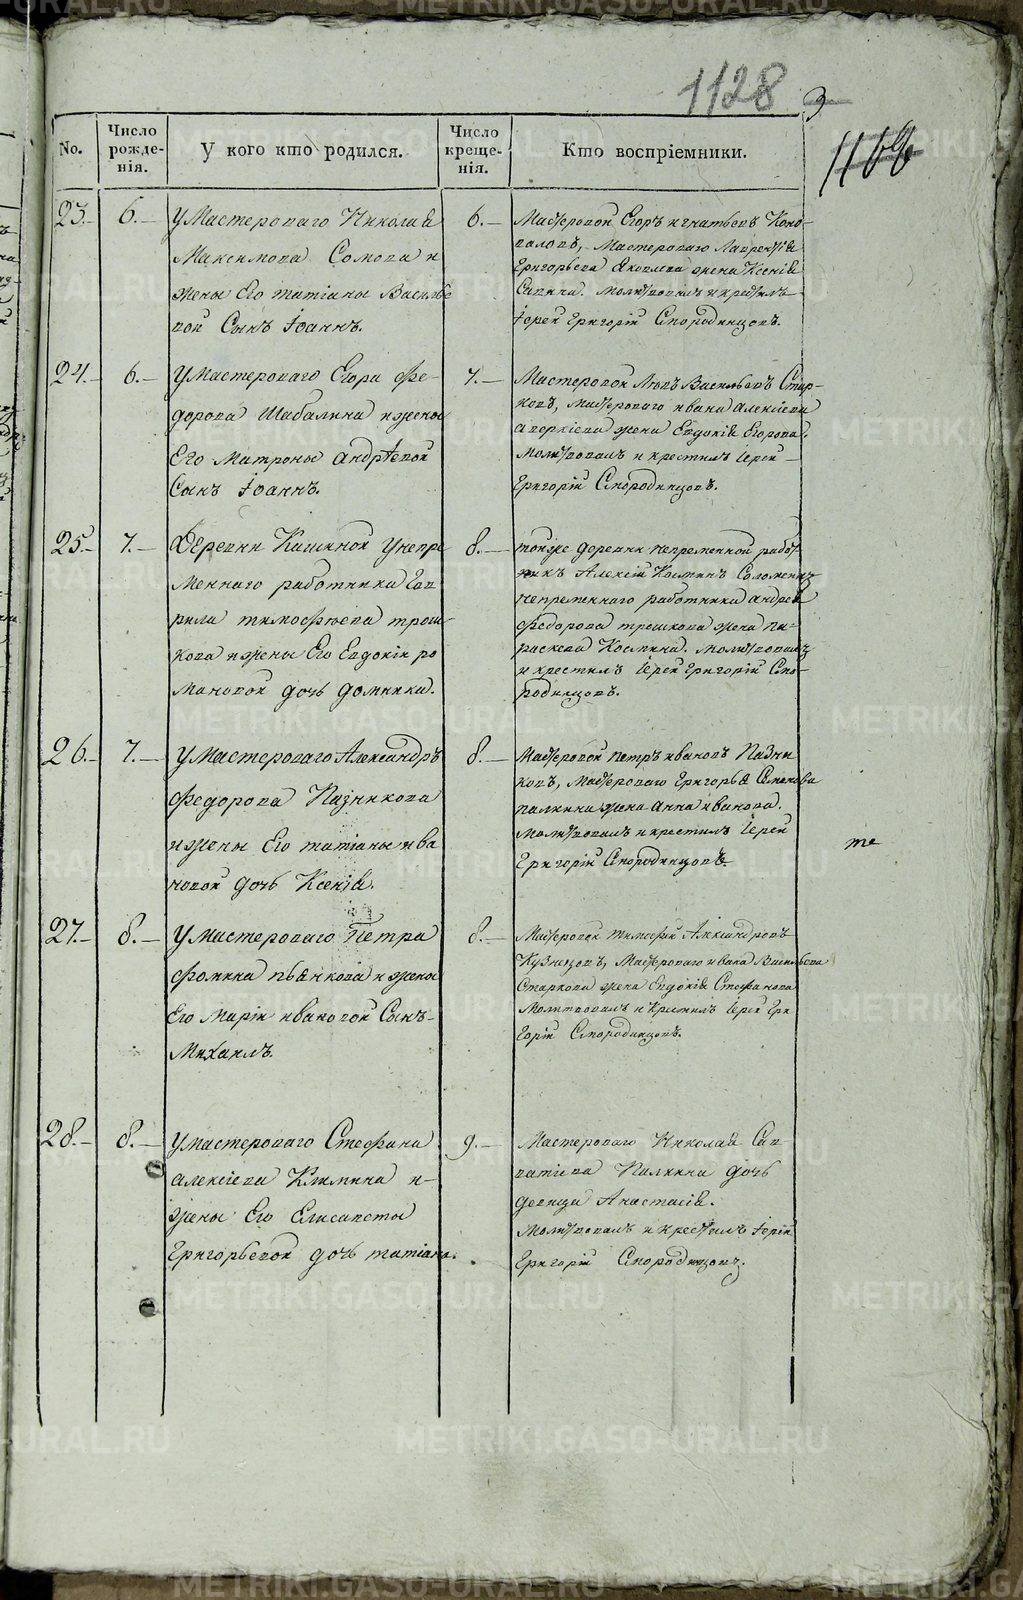 1128
3
1169
No.
Число рожденія.
У кого кто родился.
Число крещенія.
Кто воспріемники.
23.
6.
У Мастероваго Николая
Максимова Сомова и
жены Его татіаны Василье
вой Сынъ Іоаннъ.
6.
Мастеровой Егоръ игнатьевъ Коно-
валовъ, Мастероваго Лаврентія
Григорьева Яковлева жена Ксенія
Савина. Молитвовалъ и крестилъ
Іерей Григорій Смородинцовъ.
24.
6.
У Мастероваго Егора Фе-
дорова Шабалина и жены
Его Матроны андрѣевой
Сынъ Іоаннъ.
7.
Мастеровой Львъ Васильевъ Стар-
ковъ, Мастероваго ивана алексіева
аверкіева жена Евдокія Егорова.
Молитвовалъ и крестилъ Іерей
Григорій Смородинцовъ.
25.
7.
Деревни Кашиной у непре
меннаго работника Гав
рила тимофѣева трош-
кова и жены Его Евдокіи ро
мановой дочь домника.
8.
тойже деревни непременной работ
никъ Алексій Козминъ Соломеинъ
непременнаго работника андрея
Федорова трошкова жена па-
раскева Козмина. Молитвовалъ
и крестилъ Іерей Григорій Смо-
родинцовъ.
26.
7.
У Мастероваго Александръ
Федорова Пазникова
и жены Его татіаны ива
новой дочь Ксенія.
8.
Мастеровой петръ ивановъ Пазни
ковъ, Мастероваго Григорья
палкина жена анна иванова.
Молитвовалъ и крестилъ Іерей
Григорій Смородинцовъ.
те
27.
8.
У Мастероваго Петра
Фомина пьянкова и жены
Его Маріи ивановой Сынъ
Михаилъ.
8.
Мастеровой тимофей Александровъ
Кузнецовъ, Мастероваго ивана Васильева
Старкова жена Евдокія Стефанова
Молитвовалъ и Крестилъ Іерей Гри
горій Смородинцовъ.
28.
8.
У мастероваго Стефана
алексіева Климина и
жены Его Елисаветы
Григорьевой дочь татіана.
9.
Мастероваго Николая Сав
ватіева Палкина дочь
девица Анастасія.
Молитвовалъ и крестилъ Іерей
Григорій Смородинцовъ.
METRIKI.GASO-URAL.RU